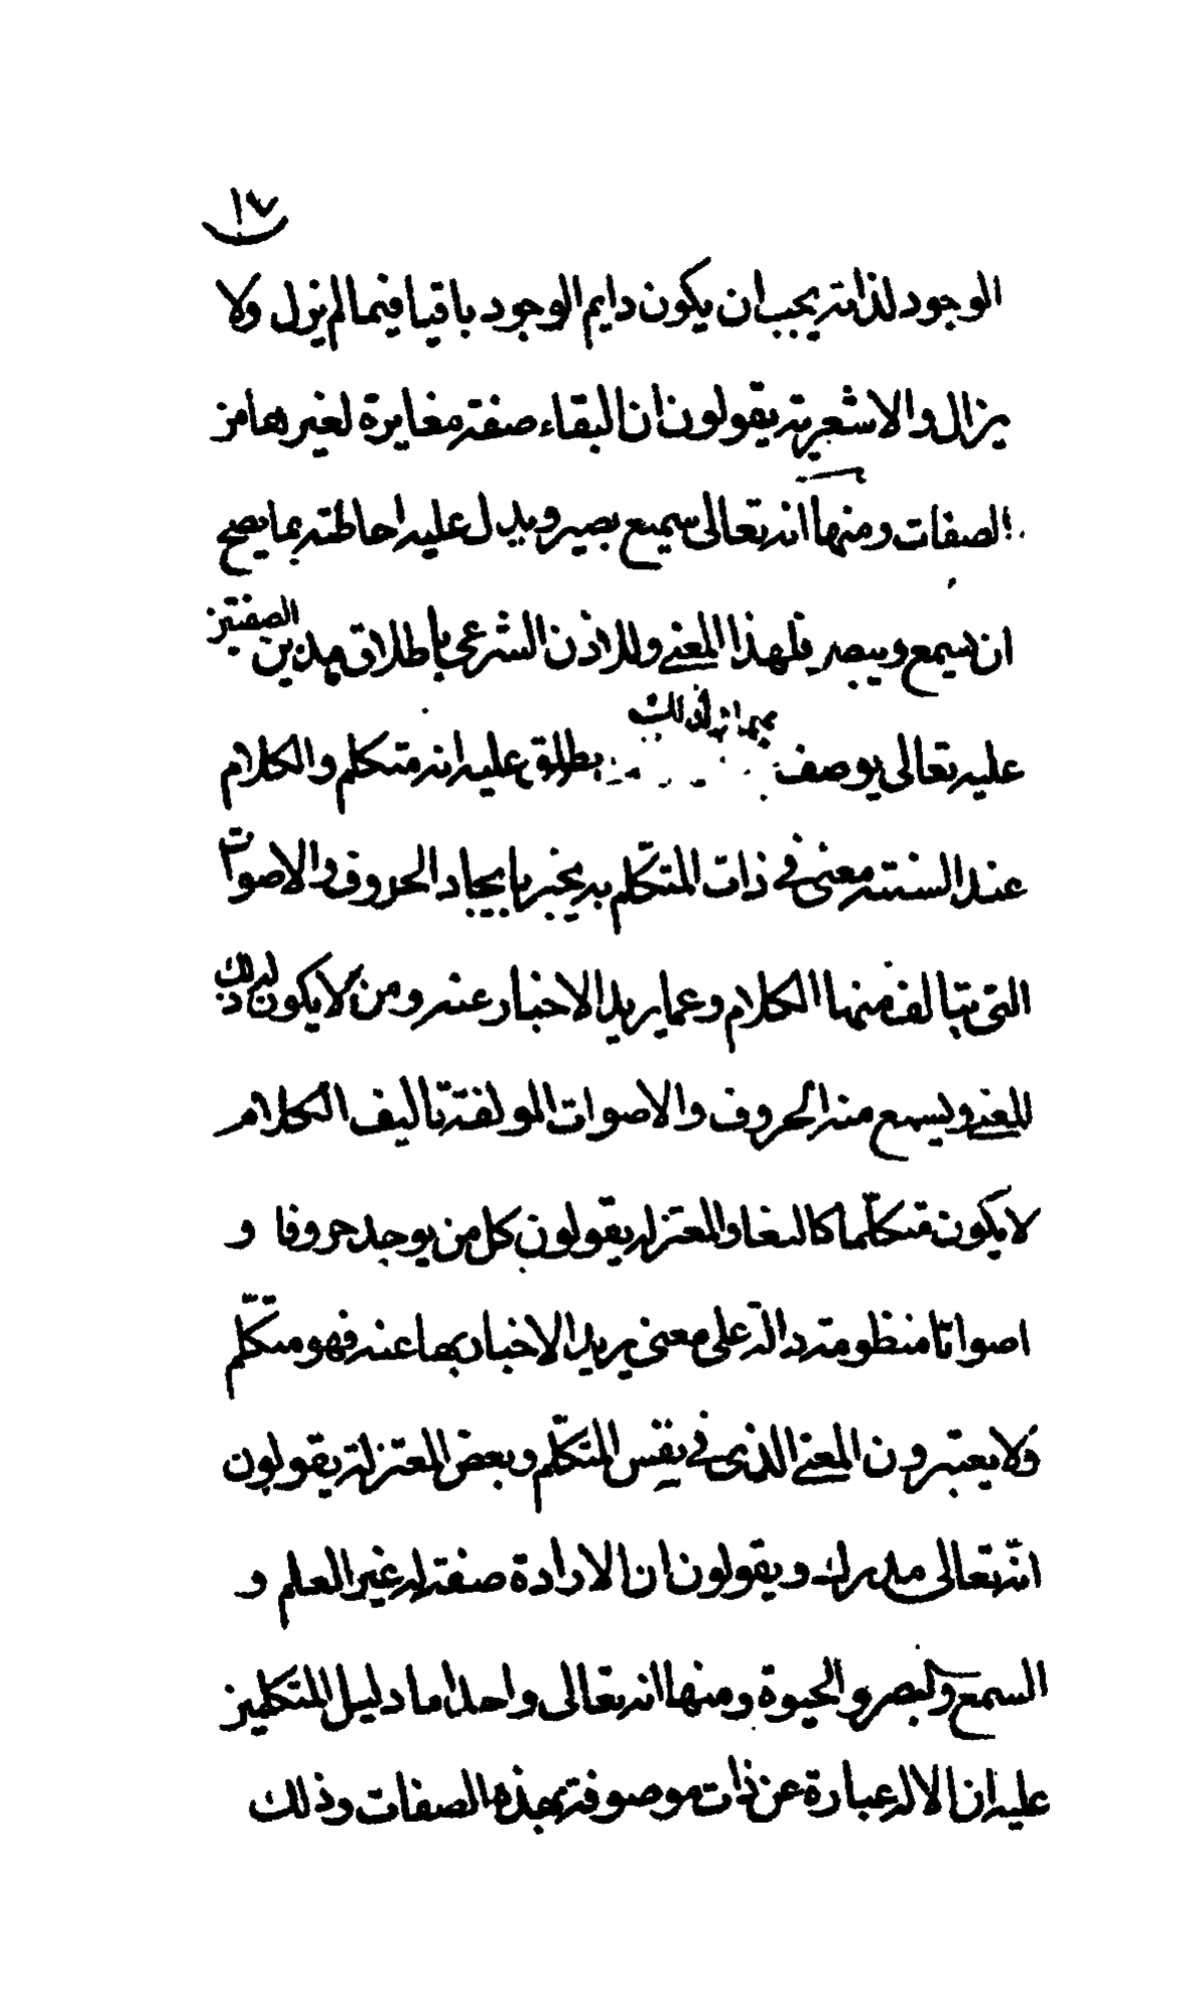 ١٧
الوجود لذاته يجب ان يكون دايم الوجود باقيا فيما لم يزل ولا
يزال والاشعرية يقولون ان البقاء صفة مغايرة لغيرها من
الصفات ومنها انه تعالى سميع بصير ويدل عليه احاطته بما يصح
ان يسمع ويبصر فلهذا المعنى وللاذن الشرعى باطلاق هذين الصفتين
عليه تعالى يوصف بهما انه لذلك يطلق عليه انه متكلم والكلام
عند السنته معنى فى ذات المتكلم به يخبر بايجاد الحروف والاصوات
التى يتالف منها الكلام وعما يريد الاخبار عنه ومن لا يكون له ذلك
المعنى ويسمع منه الحروف والاصوات المولفة تاليف الكلام
لا يكون متكلّما كالببغا والمعتزله يقولون كل من يوجد حروفا و
اصواتا منظومة دالة على معنى يريد الاخبار بها عنه فهو متكلّم
ولا يعتبرون المعنى الذى فى نفس المتكلّم وبعض المعتزلة يقولون
انّه تعالى مدرك ويقولون ان الارادة صفة له غير العلم و
السمع والبصر والحيوة ومنها انه تعالى واحد اما دليل المتكلمين
عليه ان الاله عبارة عن ذات موصوفة بهذه الصفات وذلك